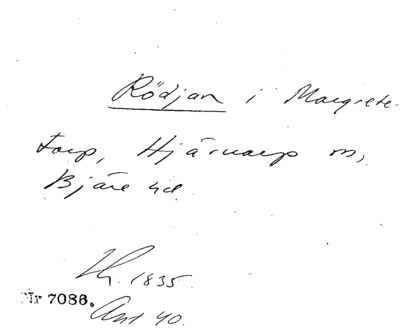 Rödjan i Margrete-
torp, Hjärnarp sn,
Bjäre hd.
Lh. 1835.
Nr 7086. Ant 40.